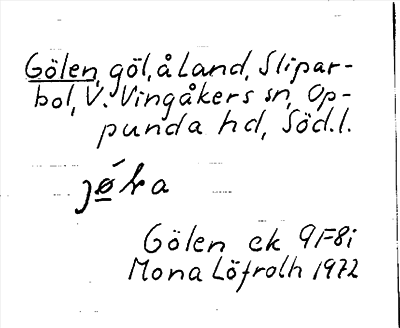 Gölen, göl, å land, Slipar-
bol, V. Vingåkers sn, Op-
punda hd, Söd.l.
Gölen ek 9F8i
Mona Löfroth 1972